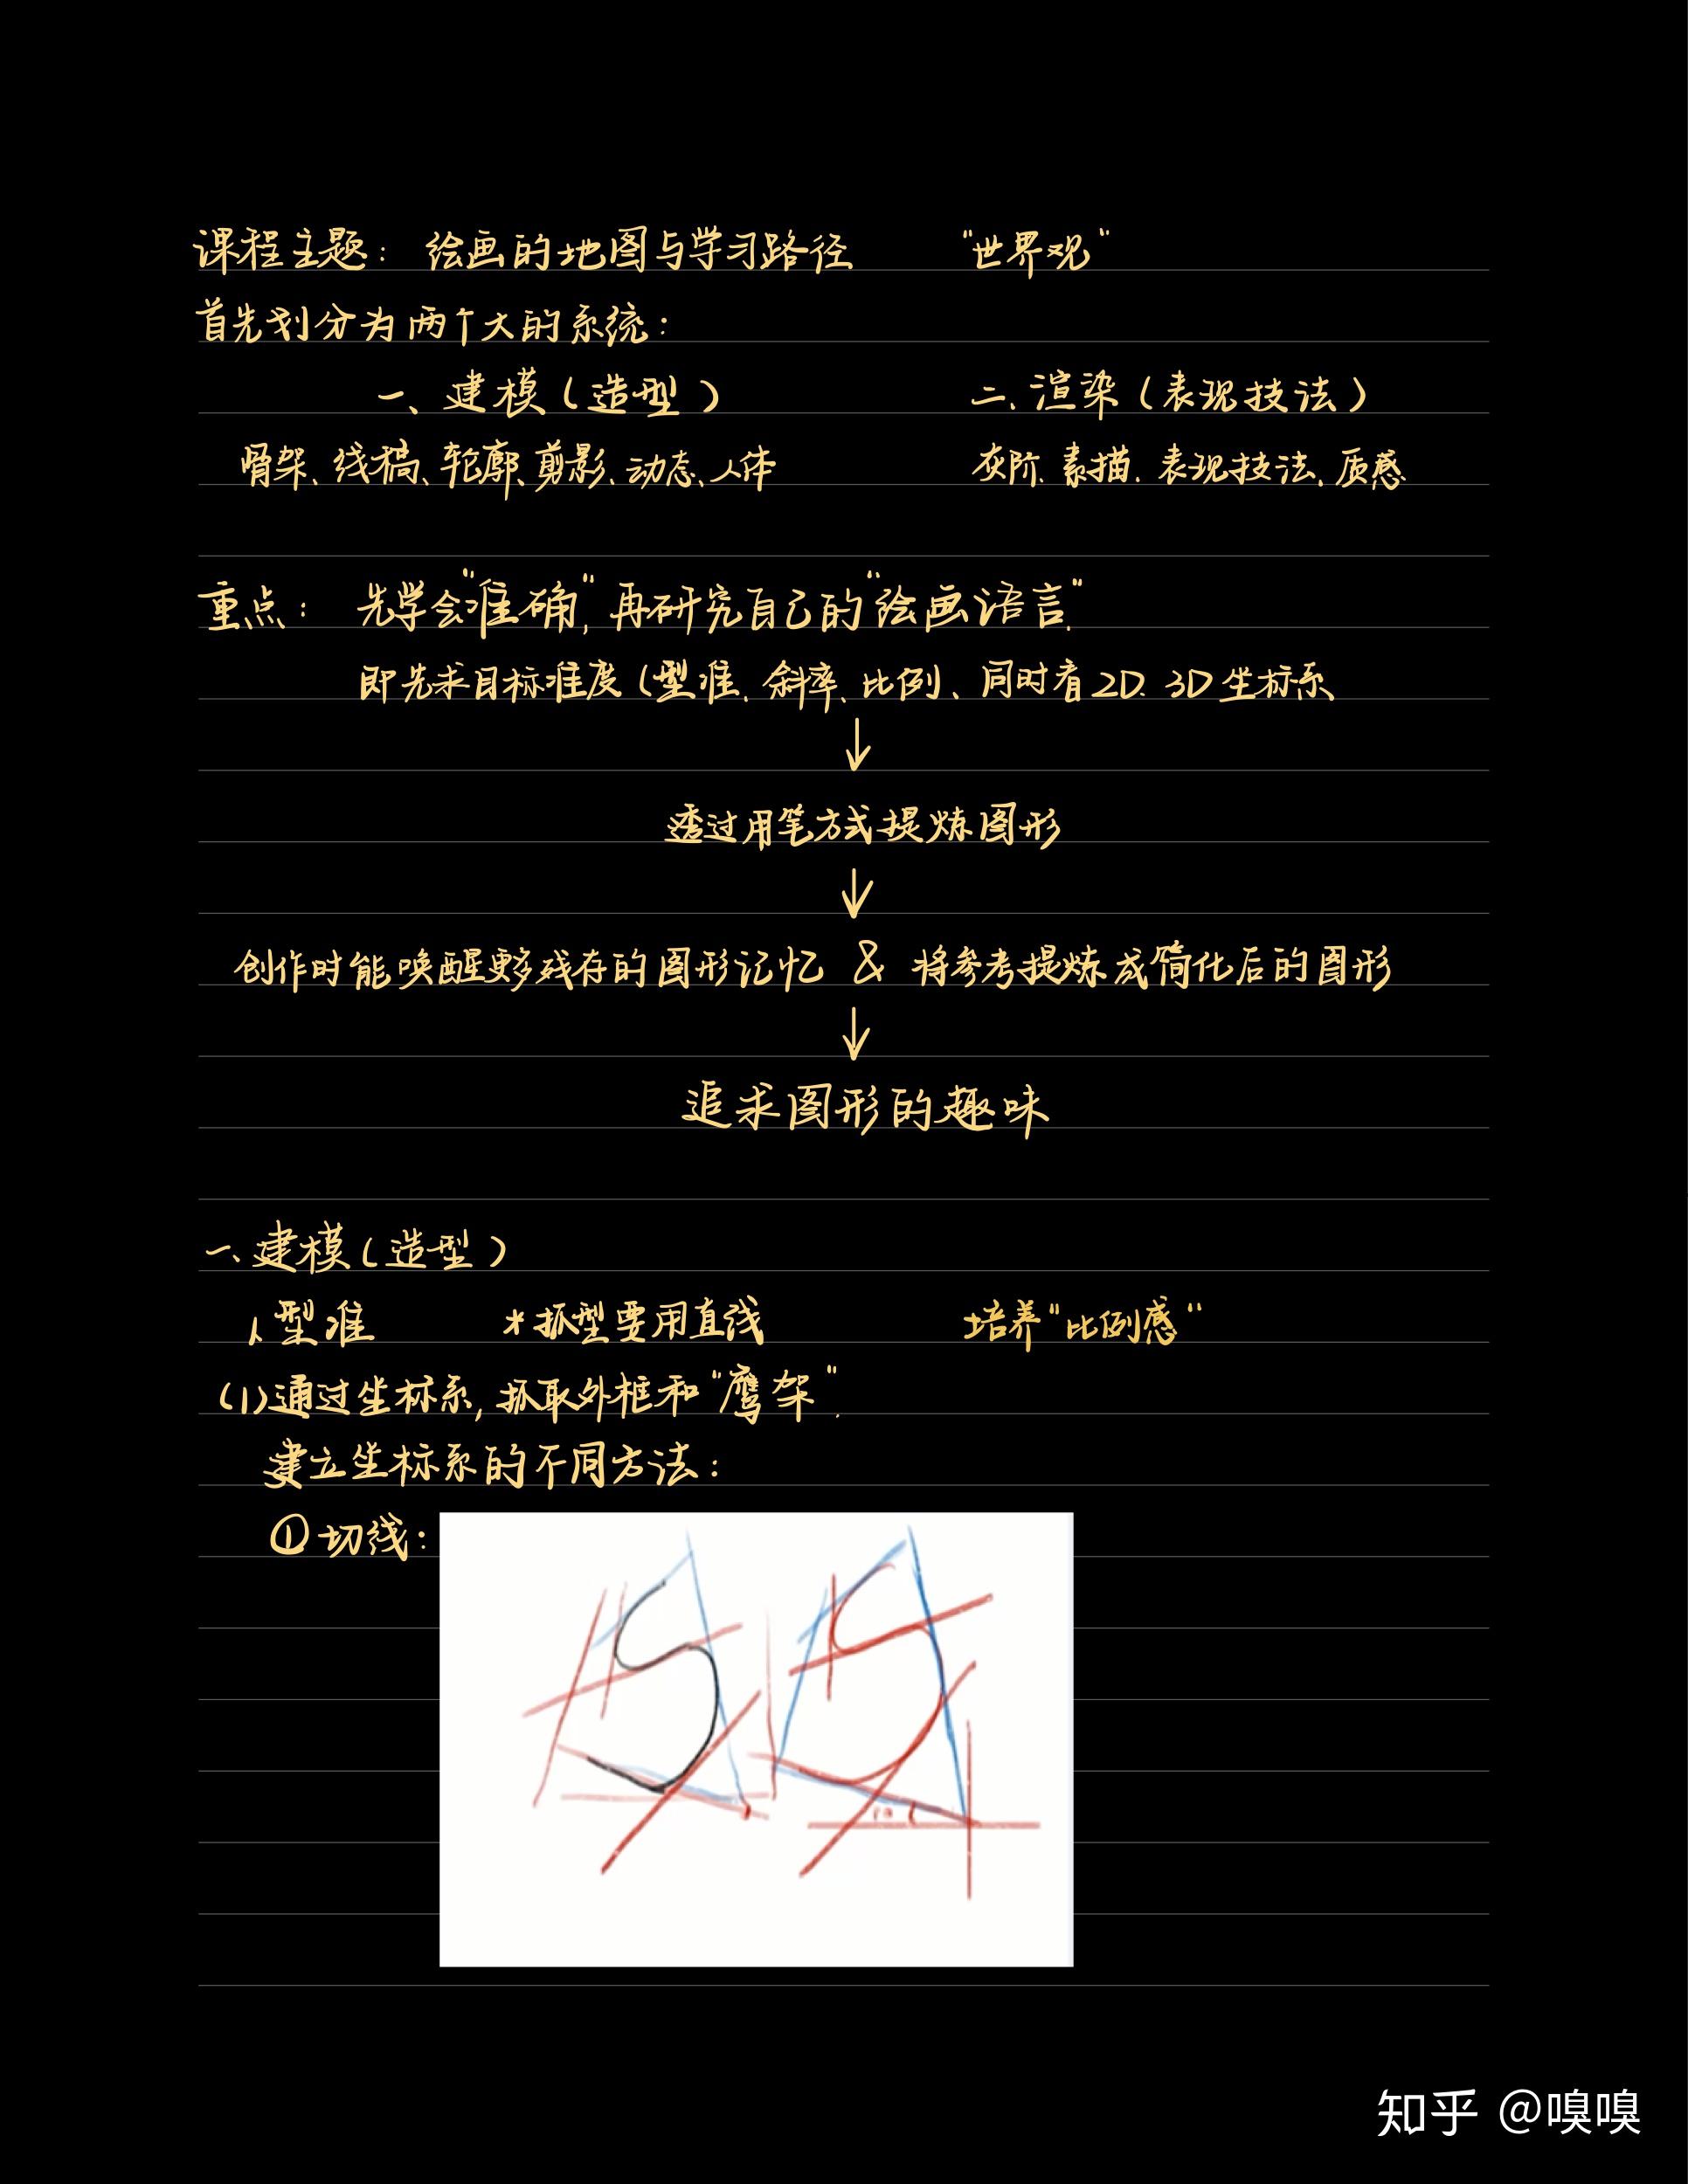 课程主题：绘画的地图与学习路径 “世界观”
首先划分为两个大的系统：
一、建模（造型） 二、渲染（表现技法）
骨架、线稿、轮廓、剪影、动态、人体 灰阶、素描、表现技法、质感
重点：先学会“准确”，再研究自己的“绘画语言”.
即先求目标准度（型准、斜率、比例、同时看2D、3D坐标系
↓
透过用笔方式提炼图形
↓
创作时能唤醒更多残存的图形记忆 & 将参考提炼成简化后的图形
↓
追求图形的趣味
一、建模（造型）
1、型准 *抓型要用直线 培养“比例感”
(1)通过坐标系，抓取外框和“鹰架”.
建立坐标系的不同方法：
①切线：
知乎 @嗅嗅